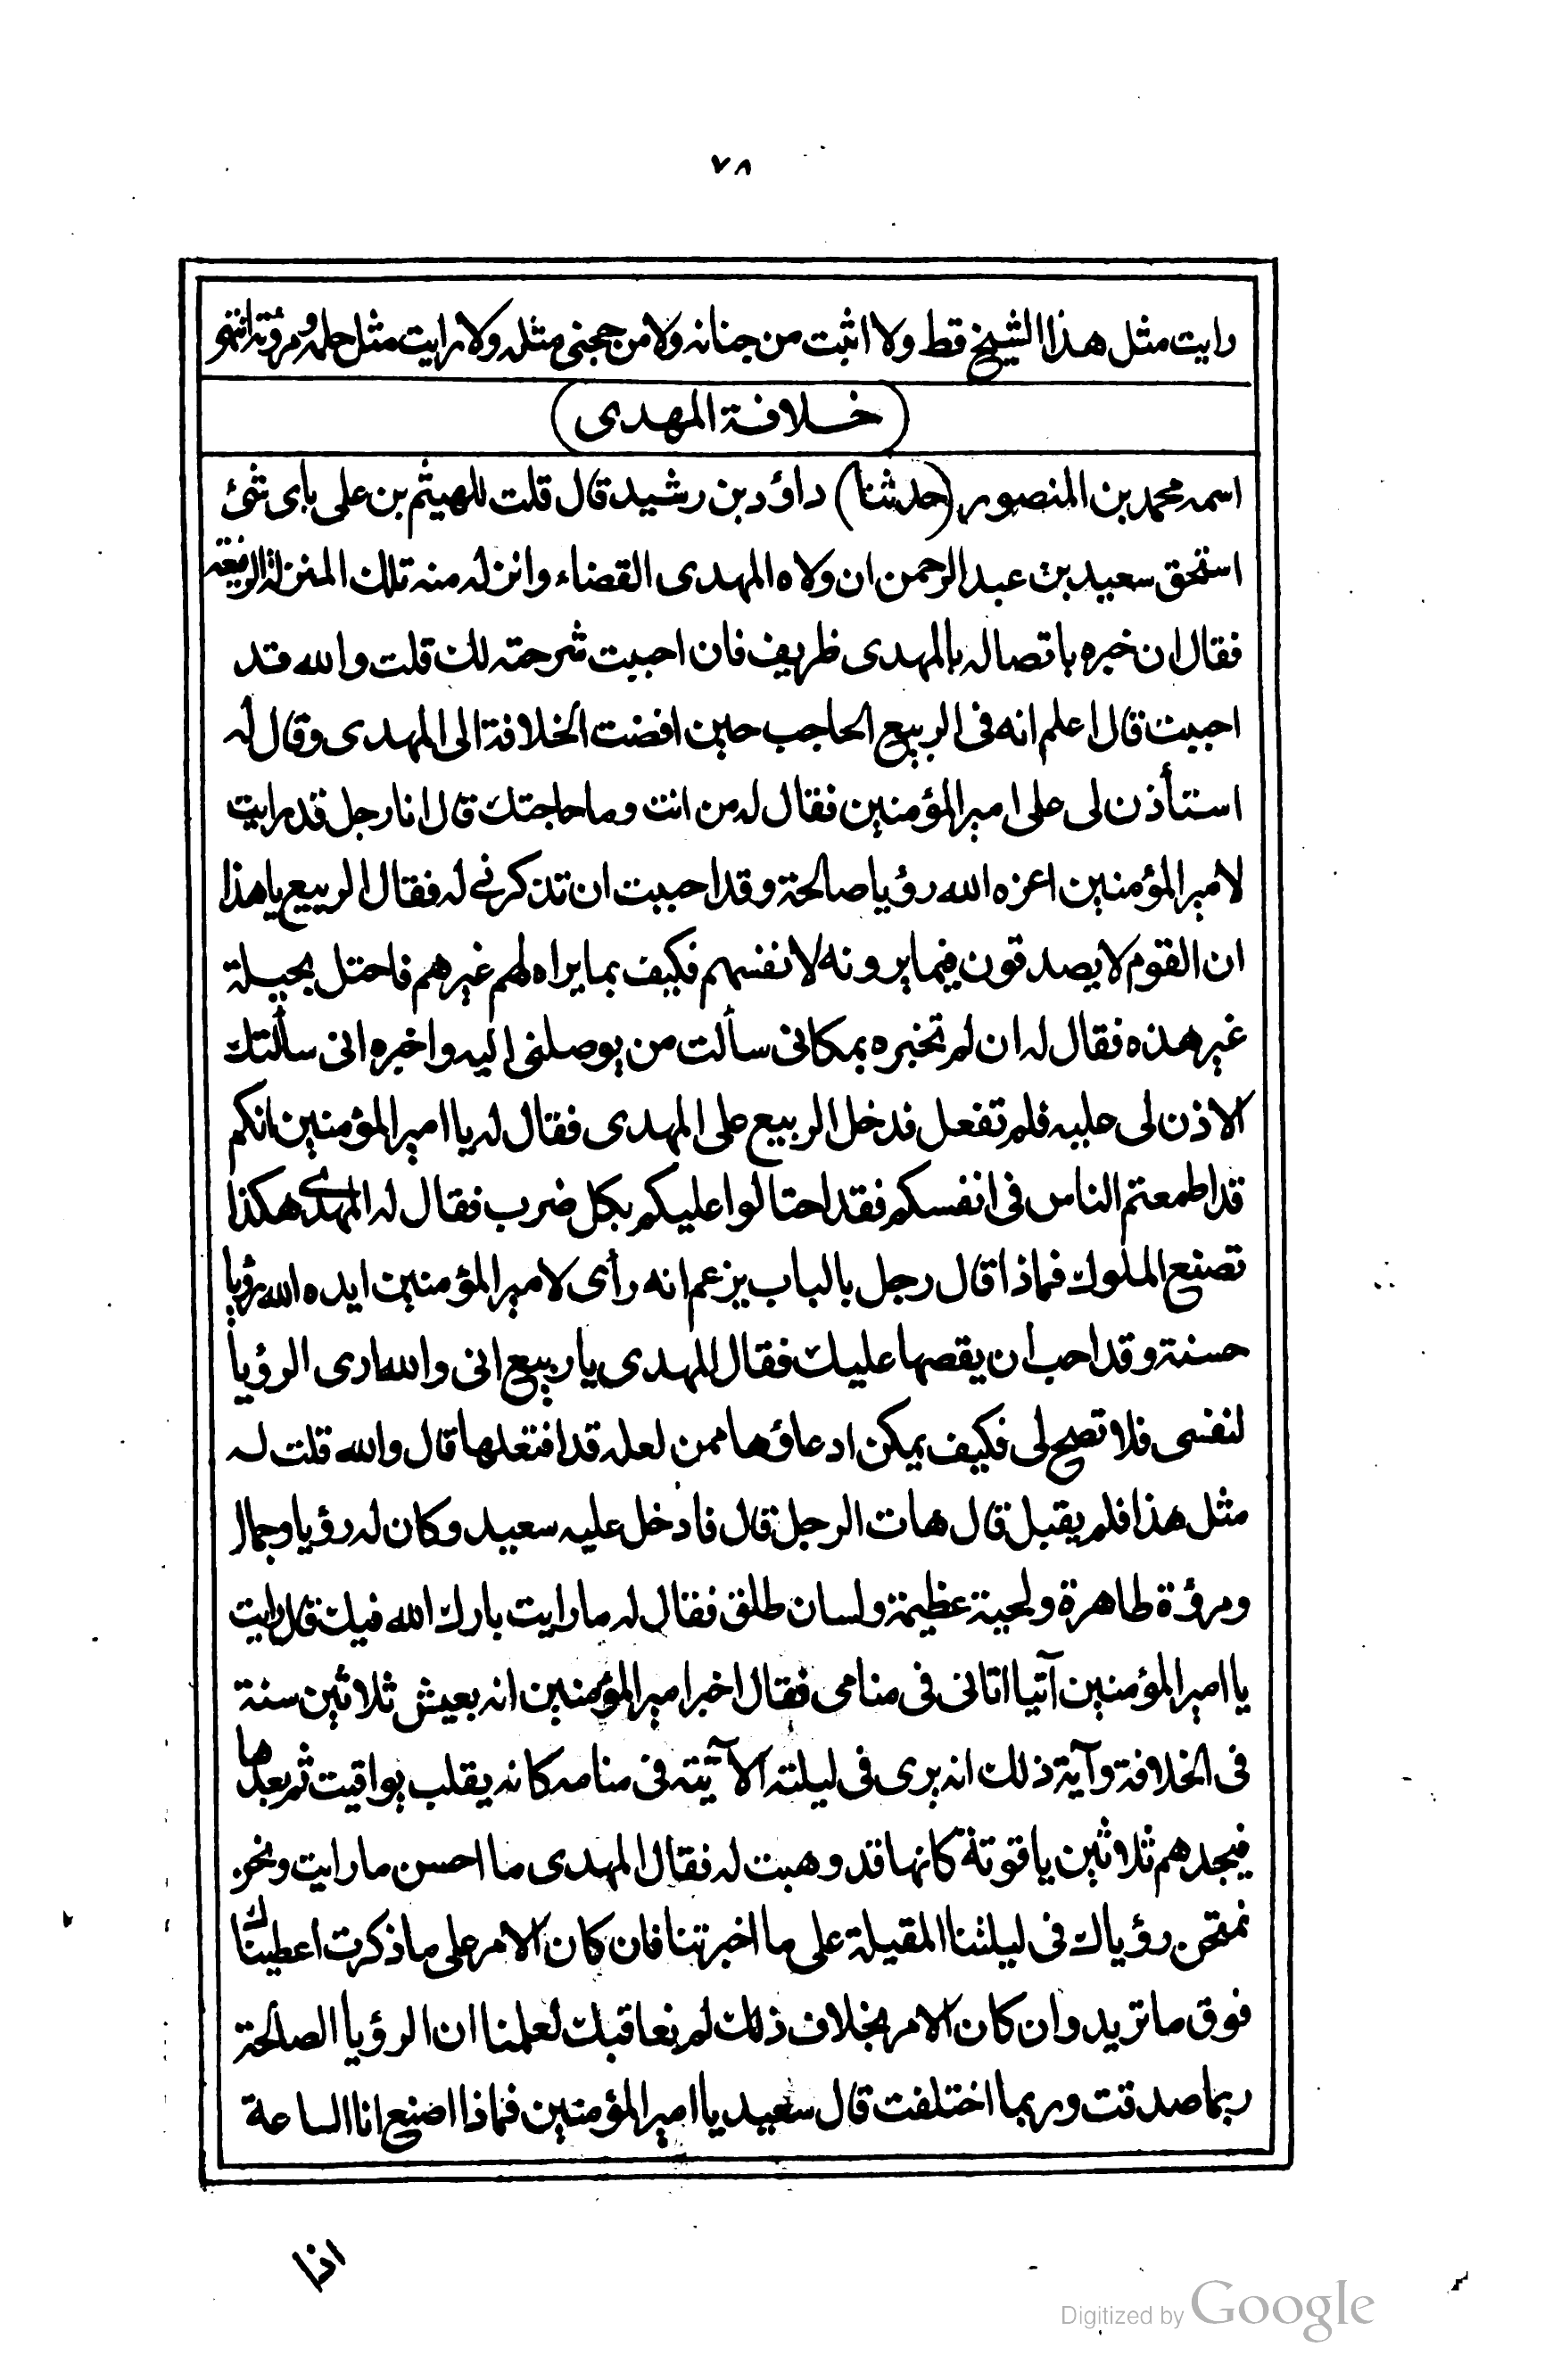 ٧٨
رايت مثل هذا الشيخ قط ولا اثبت من جنانه ولا من حجنى مثله ولا رايت مثل حلمه ومروته انتهى
(خلافة المهدى)
اسمه محمد بن المنصور (حدثنا) داؤد بن رشيد قال قلت للهيثم بن على باى شئ
استحق سعيد بن عبد الرحمن ان ولاه المهدى القضاء وانزله منه تلك المنزلة الرفيعة
فقال ان خبره باتصاله بالمهدى ظريف فان احببت شرحته لك قلت والله قد
احببت قال اعلم انه فى الربيع الحاجب حين افضت الخلافة الى المهدى وقال له
استأذن لى على امير المؤمنين فقال له من انت وما حاجتك قال انا رجل قد رايت
لامير المؤمنين اعزه الله رؤيا صالحة وقد احببت ان تذكرنے له فقال الربيع يا هذا
ان القوم لا يصدقون فيما يرونه لانفسهم فكيف بما يراه لهم غيرهم فاحتل بحيلة
غير هذه فقال له ان لم تخبره بمكانى سألت من يوصلنى اليه واخبره انى سألتك
الاذن لى عليه فلم تفعل فدخل الربيع على المهدى فقال له يا امير المؤمنين انكم
قد اطمعتم الناس فى انفسكم فقد احتالوا عليكم بكل ضرب فقال له المهدى هكذا
تصنع الملوك فماذا قال رجل بالباب يزعم انه رأى لامير المؤمنين ايده الله رؤيا
حسنة وقد احب ان يقصها عليك فقال المهدى يا ربيع انى والله ارى الرؤيا
لنفسى فلا تصح لى فكيف يمكن ادعاؤها ممن لعله قد افتعلها قال والله قلت له
مثل هذا فلم يقبل قال هات الرجل قال فادخل عليه سعيد وكان له رؤيا وجمال
ومرؤة طاهرة ولحية عظيمة ولسان طلق فقال له ما رايت بارك الله فيك قال رايت
يا امير المؤمنين آتيا اتانى فى منامى فقال اخبر امير المؤمنين انه يعيش ثلاثين سنة
فى الخلافة وآية ذلك انه يرى فى ليلته الآتيته فى منامه كانه يقلب يواقيت ثم يعدها
فيجدهم ثلاثين ياقوتة كانها قد وهبت له فقال المهدى ما احسن ما رايت ونحن
نمتحن رؤياك فى ليلتنا المقبلة على ما اخبرتنا فان كان الامر على ما ذكرت اعطيناك
فوق ما تريد وان كان الامر بخلاف ذلك لم نعاقبك لعلمنا ان الرؤيا الصالحة
ربما صدقت وربما اختلفت قال سعيد يا امير المؤمنين فماذا اصنع انا الساعة
اذا
Digitized by Google